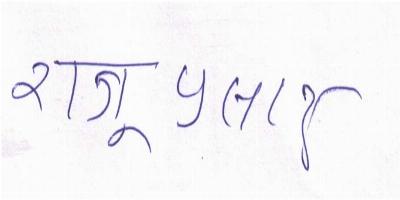 राजू प्रसाद